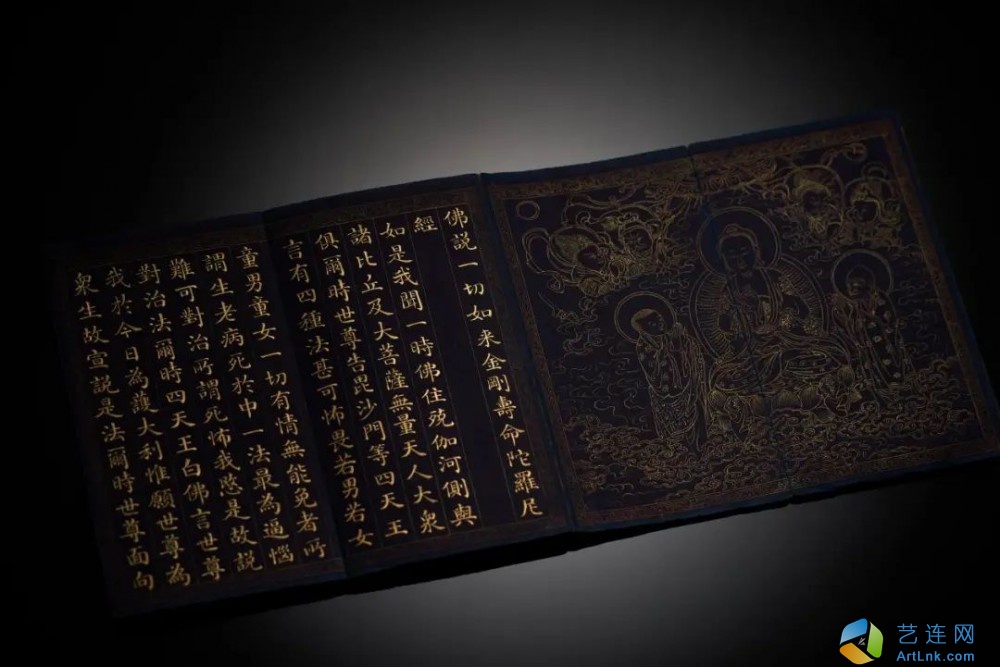 佛說一切如来金剛壽命陀羅尼
經
如是我聞一時佛住殑伽河側與
諸比丘及大菩薩無量天人大衆
俱爾時世尊告毘沙門等四天王
言有四種法甚可怖畏若男若女
童男童女一切有情無能免者所
謂生老病死於中一法最為逼惱
難可對治所謂死怖我愍是故說
對治法爾時四天王白佛言世尊
我於今日為護大利惟願世尊為
衆生故宣說是法爾時世尊面向
艺连网
ArtLnk.com